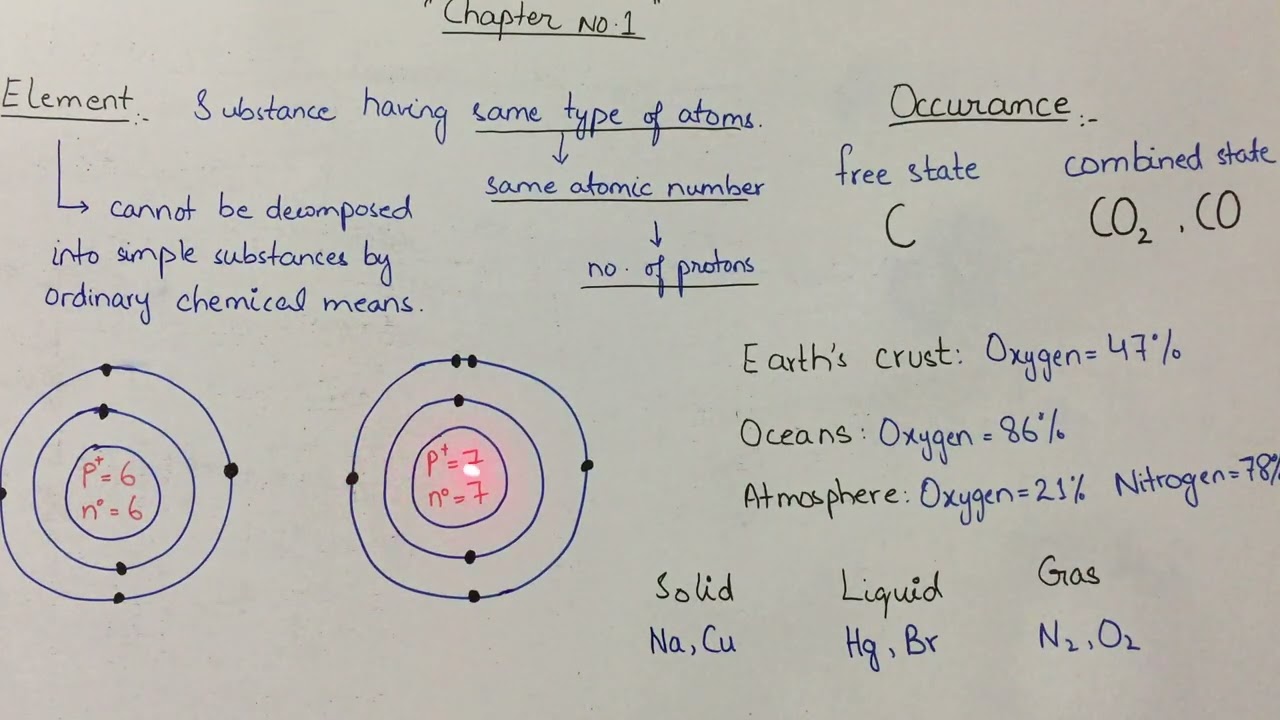 "Chapter No.1"
Element:- Substance having same type of atoms.
same atomic number
no. of protons
cannot be decomposed
into simple substances by
ordinary chemical means.
Occurance:-
free state combined state
C CO₂, CO
p⁺=6
n°=6
p⁺=7
n°=7
Earth's crust: Oxygen=47%
Oceans: Oxygen=86%
Atmosphere: Oxygen=21% Nitrogen=78%
Solid Liquid Gas
Na, Cu Hg, Br N₂, O₂